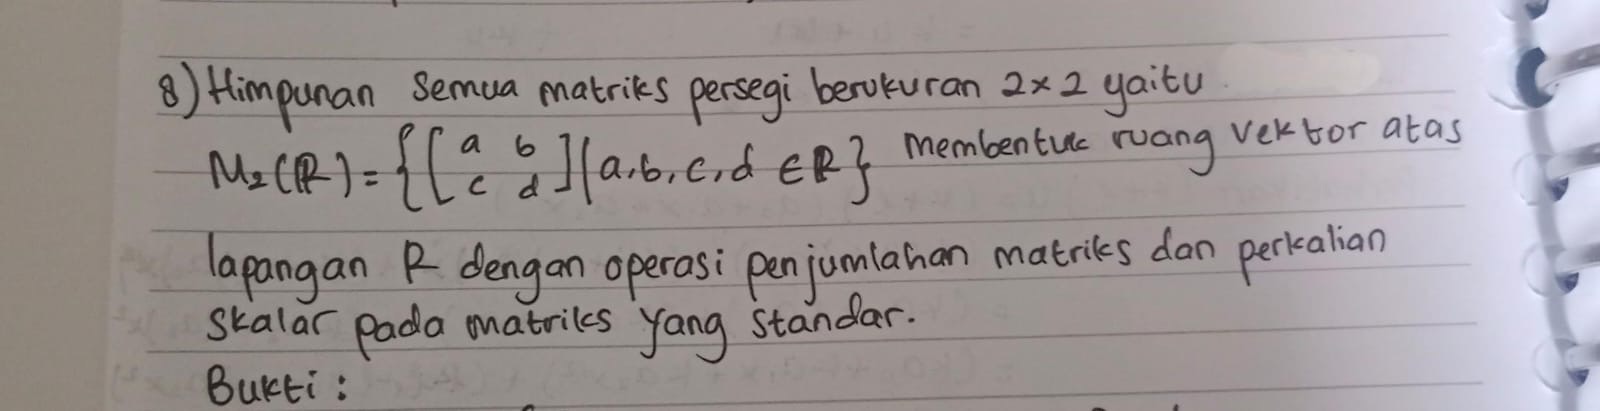 8) Himpunan semua matriks persegi berukuran 2x2 yaitu
M₂(R) = {[a b c d] | a, b, c, d ∈ R} membentuk ruang vektor atas
lapangan R dengan operasi penjumlahan matriks dan perkalian
skalar pada matriks yang standar.
Bukti :